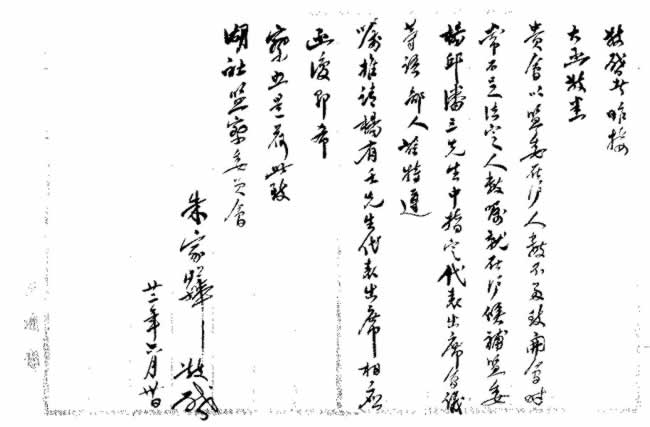 敬啓者昨接
大函敬悉
貴會以監委在沪人數不多致開會時
常不足法定人數囑就在沪候補監委
楊邱潘三先生中指定代表出席會議
等語鄙人茲特遵
囑推請楊有壬先生代表出席相應
函復即希
察照是荷此致
湖社監察委員會
朱家驊敬啓
廿二年六月廿日